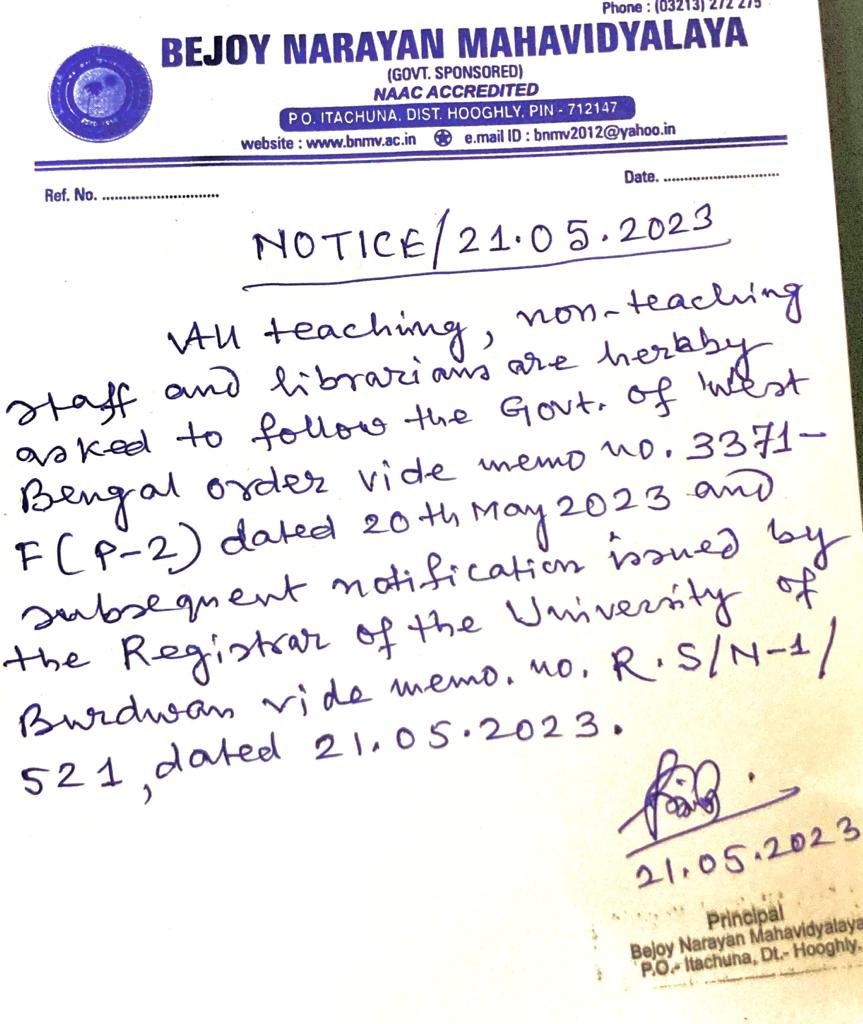 Phone : (03213) 272 275
BEJOY NARAYAN MAHAVIDYALAYA
(GOVT. SPONSORED)
NAAC ACCREDITED
P.O. ITACHUNA, DIST. HOOGHLY, PIN - 712147
website : www.bnmv.ac.in e.mail ID : bnmv2012@yahoo.in
Ref. No. .............................
Date. .............................
NOTICE/21.05.2023
All teaching, non-teaching
staff and librarians are hereby
asked to follow the Govt. of West
Bengal order vide memo no. 3371-
F(P-2) dated 20th May 2023 and
subsequent notification issued by
the Registrar of the University of
Burdwan vide memo. no. R.S/N-1/
521, dated 21.05.2023.
21.05.2023
Principal
Bejoy Narayan Mahavidyalaya
P.O.- Itachuna, Dt.- Hooghly.